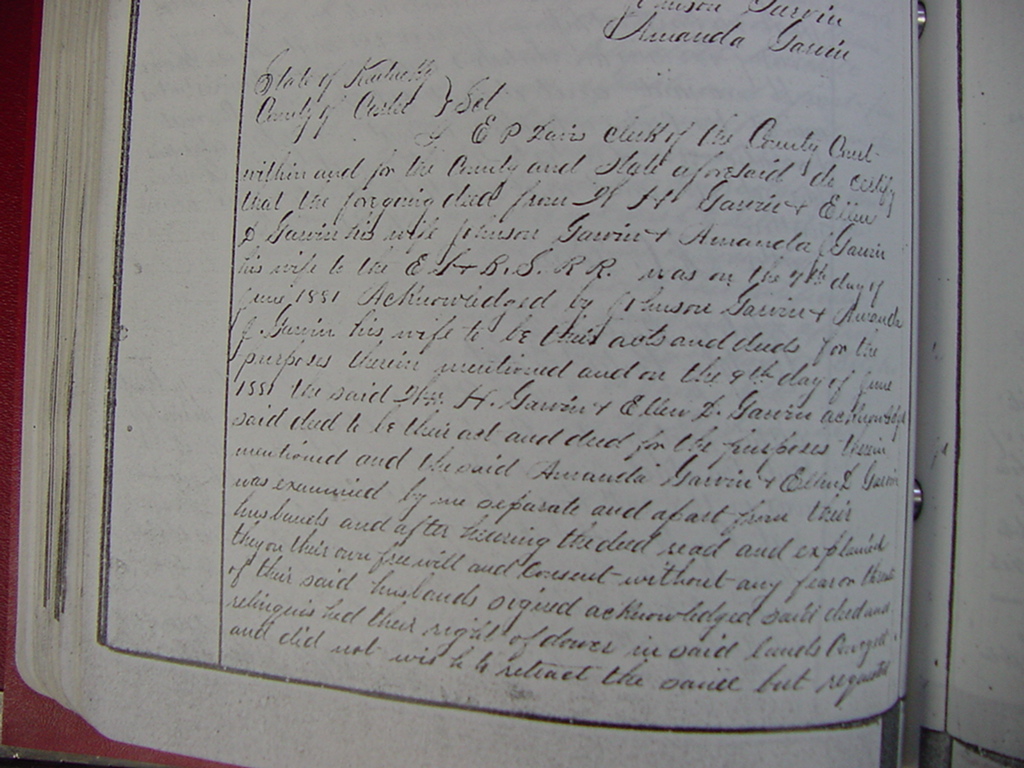 Johnson Garvin
Amanda Garvin
State of Kentucky
County of Carter } Sct
I E P Davis clerk of the County Court
within and for the County and State aforesaid do certify
that the foregoing deed from W H Garvin & Ellen
D Garvin his wife Johnson Garvin & Amanda J Garvin
his wife to the E L & B. S. R R. was on the 7th day of
June 1881 Acknowledged by Johnson Garvin & Amanda
J Garvin his wife to be their acts and deeds for the
purposes therein mentioned and on the 9th day of June
1881 the said Wm H. Garvin & Ellen D. Garvin acknowledged
said deed to be their act and deed for the purposes therein
mentioned and the said Amanda Garvin & Ellen D Garvin
was examined by me separate and apart from their
husbands and after hearing the deed read and explained
they on their own free will and Consent without any fear or threat
of their said husbands signed acknowledged said deed and
relinquished their right of dower in said lands Conveyed
and did not wish to retract the same but requested